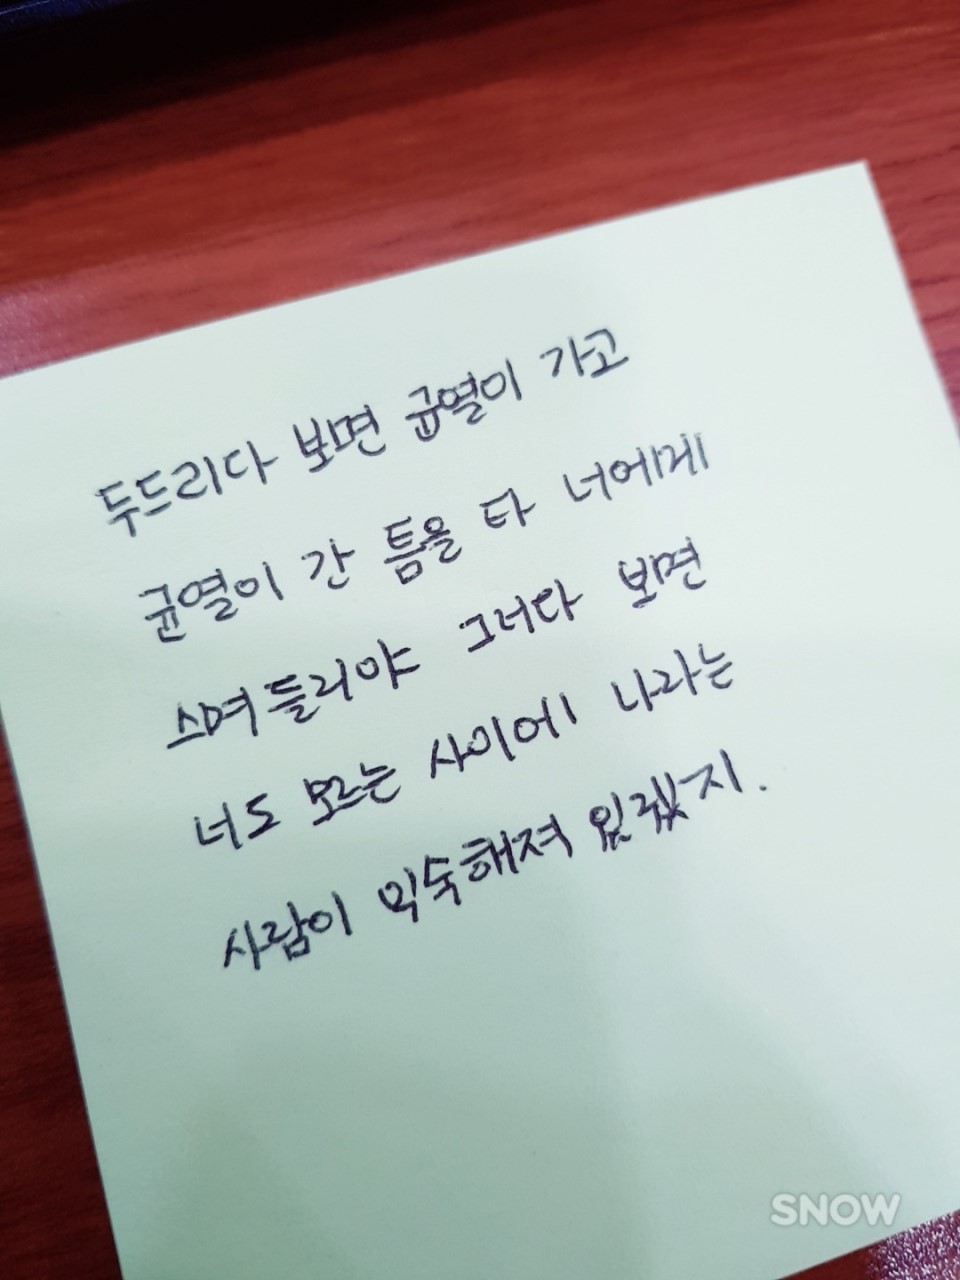 두드리다 보면 균열이 가고
균열이 간 틈을 타 너에게
스며들리야 그러다 보면
너도 모르는 사이에 나라는
사람이 익숙해져 있겠지.
SNOW